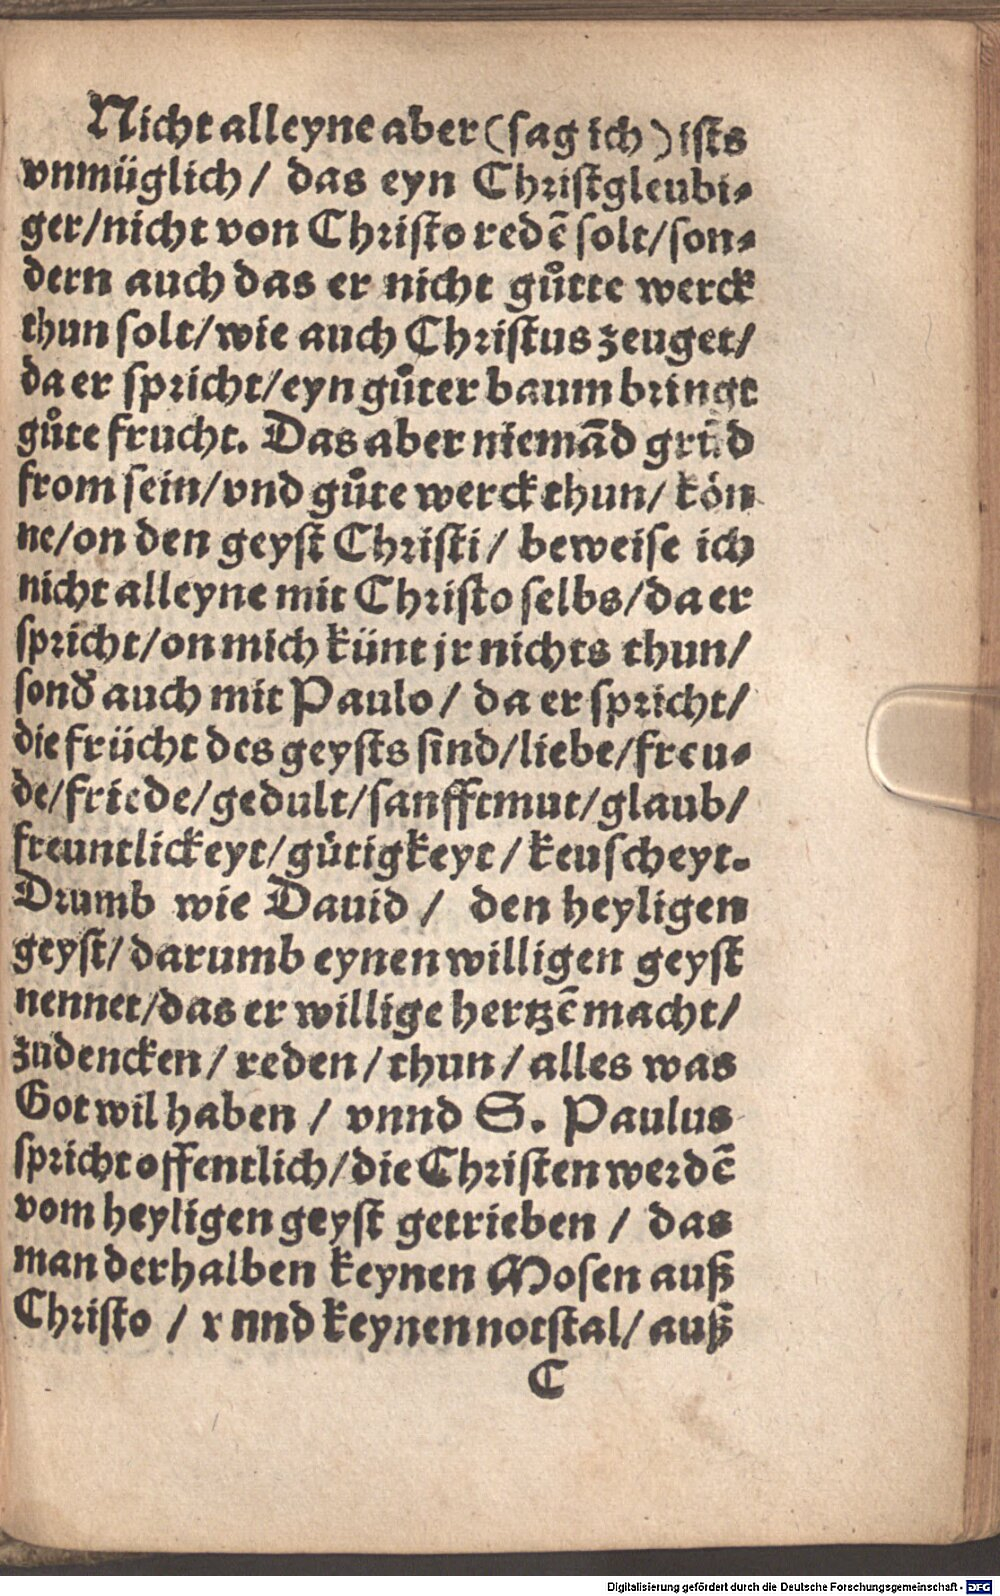 Nicht alleyne aber (sag ich) ists
vnmüglich / das eyn Christgleubi⸗
ger/nicht von Christo redē solt/son⸗
dern auch das er nicht gůtte werck
thun solt/wie auch Christus zeuget/
da er spricht/eyn gůter baum bringt
gůte frucht. Das aber niemād grūd
from sein/vnd gůte werck thun/ kön
ne/on den geyst Christi / beweise ich
nicht alleyne mit Christo selbs/da er
spricht/on mich künt jr nichts thun/
sonđ auch mit Paulo / da er spricht/
die frücht des geysts sind/liebe/freu⸗
de/friede/gedult/sanfftmut/glaub/
freuntlickeyt/gůtigkeyt / keuscheyt.
Drumb wie Dauid / den heyligen
geyst/ darumb eynen willigen geyst
nennet/das er willige hertzē macht/
zudencken / reden / thun / alles was
Got wil haben / vnnd S. Paulus
spricht offentlich/die Christen werdē
vom heyligen geyst getrieben / das
man derhalben keynen Mosen auß
Christo / vnnd keynen notstal/ auß
C
Digitalisierung gefördert durch die Deutsche Forschungsgemeinschaft - DFG